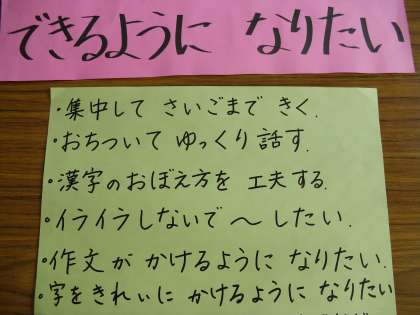 できるように なりたい
・集中して さいごまで きく.
・おちついて ゆっくり 話す.
・漢字のおぼえ方を 工夫する.
・イライラしないで 〜 したい.
・作文が かけるように なりたい.
・字をきれいに かけるように なりたい